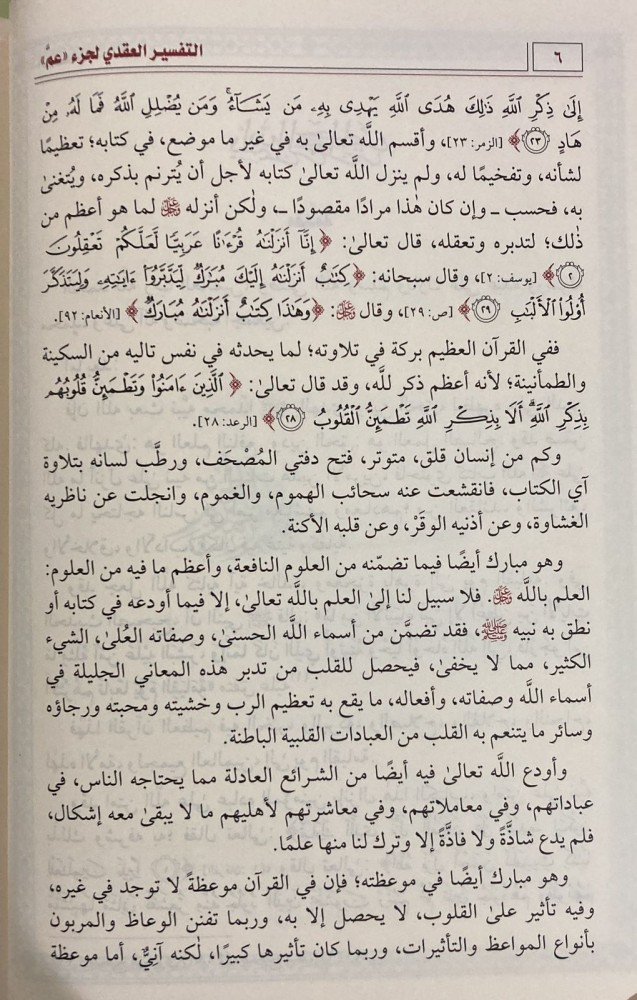 ٦
التفسير العقدي لجزء «عمَّ»
إِلَىٰ ذِكْرِ ٱللَّهِ ذَٰلِكَ هُدَى ٱللَّهِ يَهْدِى بِهِۦ مَن يَشَآءُ ۚ وَمَن يُضْلِلِ ٱللَّهُ فَمَا لَهُۥ مِنْ
هَادٍ ٢٣﴾ [الزمر: ٢٣]، وأقسم اللَّه تعالىٰ به في غير ما موضع، في كتابه؛ تعظيمًا
لشأنه، وتفخيمًا له، ولم ينزل اللَّه تعالىٰ كتابه لأجل أن يُترنم بذكره، ويُتغنىٰ
به، فحسب ـ وإن كان هٰذا مرادًا مقصودًا ـ، ولٰكن أنزله ﷻ لما هو أعظم من
ذٰلك؛ لتدبره وتعقله، قال تعالىٰ: ﴿إِنَّآ أَنزَلْنَٰهُ قُرْءَٰنًا عَرَبِيًّا لَّعَلَّكُمْ تَعْقِلُونَ
٢﴾ [يوسف: ٢]، وقال سبحانه: ﴿كِتَٰبٌ أَنزَلْنَٰهُ إِلَيْكَ مُبَٰرَكٌ لِّيَدَّبَّرُوٓا۟ ءَايَٰتِهِۦ وَلِيَتَذَكَّرَ
أُو۟لُوا۟ ٱلْأَلْبَٰبِ ٢٩﴾ [ص: ٢٩]، وقال ﷻ: ﴿وَهَٰذَا كِتَٰبٌ أَنزَلْنَٰهُ مُبَارَكٌ﴾ [الأنعام: ٩٢].
ففي القرآن العظيم بركة في تلاوته؛ لما يحدثه في نفس تاليه من السكينة
والطمأنينة؛ لأنه أعظم ذكر للَّه، وقد قال تعالىٰ: ﴿ٱلَّذِينَ ءَامَنُوا۟ وَتَطْمَئِنُّ قُلُوبُهُم
بِذِكْرِ ٱللَّهِ ۗ أَلَا بِذِكْرِ ٱللَّهِ تَطْمَئِنُّ ٱلْقُلُوبُ ٢٨﴾ [الرعد: ٢٨].
وكم من إنسان قلق، متوتر، فتح دفتي المُصْحَف، ورطَّب لسانه بتلاوة
آي الكتاب، فانقشعت عنه سحائب الهموم، والغموم، وانجلت عن ناظريه
الغشاوة، وعن أذنيه الوقَرْ، وعن قلبه الأكنة.
وهو مبارك أيضًا فيما تضمّنه من العلوم النافعة، وأعظم ما فيه من العلوم:
العلم باللَّه ﷻ. فلا سبيل لنا إلىٰ العلم باللَّه تعالىٰ، إلا فيما أودعه في كتابه أو
نطق به نبيه ﷺ، فقد تضمَّن من أسماء اللَّه الحسنىٰ، وصفاته العُلىٰ، الشيء
الكثير، مما لا يخفىٰ، فيحصل للقلب من تدبر هٰذه المعاني الجليلة في
أسماء اللَّه وصفاته، وأفعاله، ما يقع به تعظيم الرب وخشيته ومحبته ورجاؤه
وسائر ما يتنعم به القلب من العبادات القلبية الباطنة.
وأودع اللَّه تعالىٰ فيه أيضًا من الشرائع العادلة مما يحتاجه الناس، في
عباداتهم، وفي معاملاتهم، وفي معاشرتهم لأهليهم ما لا يبقىٰ معه إشكال،
فلم يدع شاذَّةً ولا فاذَّةً إلا وترك لنا منها علمًا.
وهو مبارك أيضًا في موعظته؛ فإن في القرآن موعظةً لا توجد في غيره،
وفيه تأثير علىٰ القلوب، لا يحصل إلا به، وربما تفنن الوعاظ والمربون
بأنواع المواعظ والتأثيرات، وربما كان تأثيرها كبيرًا، لٰكنه آنِيٌّ، أما موعظة